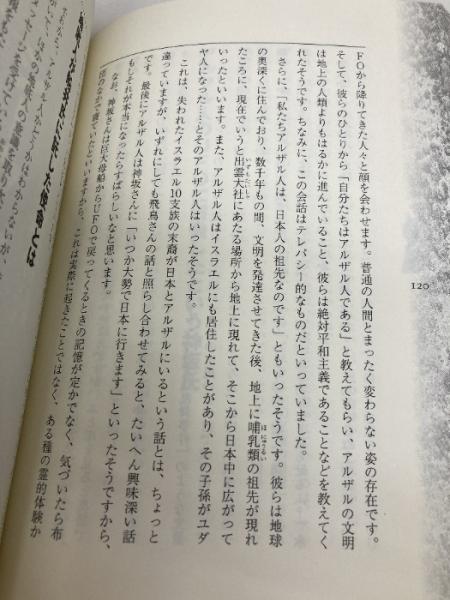 120
FOから降りてきた人々と顔を会わせます。普通の人間とまったく変わらない姿の存在です。
そして、彼らのひとりから「自分たちはアルザル人である」と教えてもらい、アルザルの文明
は地上の人類よりもはるかに進んでいること、彼らは絶対平和主義であることなどを教えてく
れたそうです。ちなみに、この会話はテレパシー的なものだといっていました。
さらに、「私たちアルザル人は、日本人の祖先なのです」ともいったそうです。彼らは地球
の奥深くに住んでおり、数千年もの間、文明を発達させてきた後、地上に哺乳類の祖先が現れ
たころに、現在でいうと出雲大社にあたる場所から地上に現れて、そこから日本中に広がって
いったといいます。また、アルザル人はイスラエルにも居住したことがあり、その子孫がユダ
ヤ人になった……とそのアルザル人はいったそうです。
これは、失われたイスラエル10支族の末裔が日本とアルザルにいるという話とは、ちょっと
違っていますが、いずれにしても飛鳥さんの話と照らし合わせてみると、たいへん興味深い話
です。最後にアルザル人は神坂さんに「いつか大勢で日本に行きます」といったそうですから、
もしそれが本当になったらすばらしいなと思います。
なお、神坂さんは巨大母船からUFOで戻ってくるときの記憶が定かでなく、気づいたら布
団のなかで寝ていたといいますから、これは実際に起きたことではなく、ある種の霊的体験か